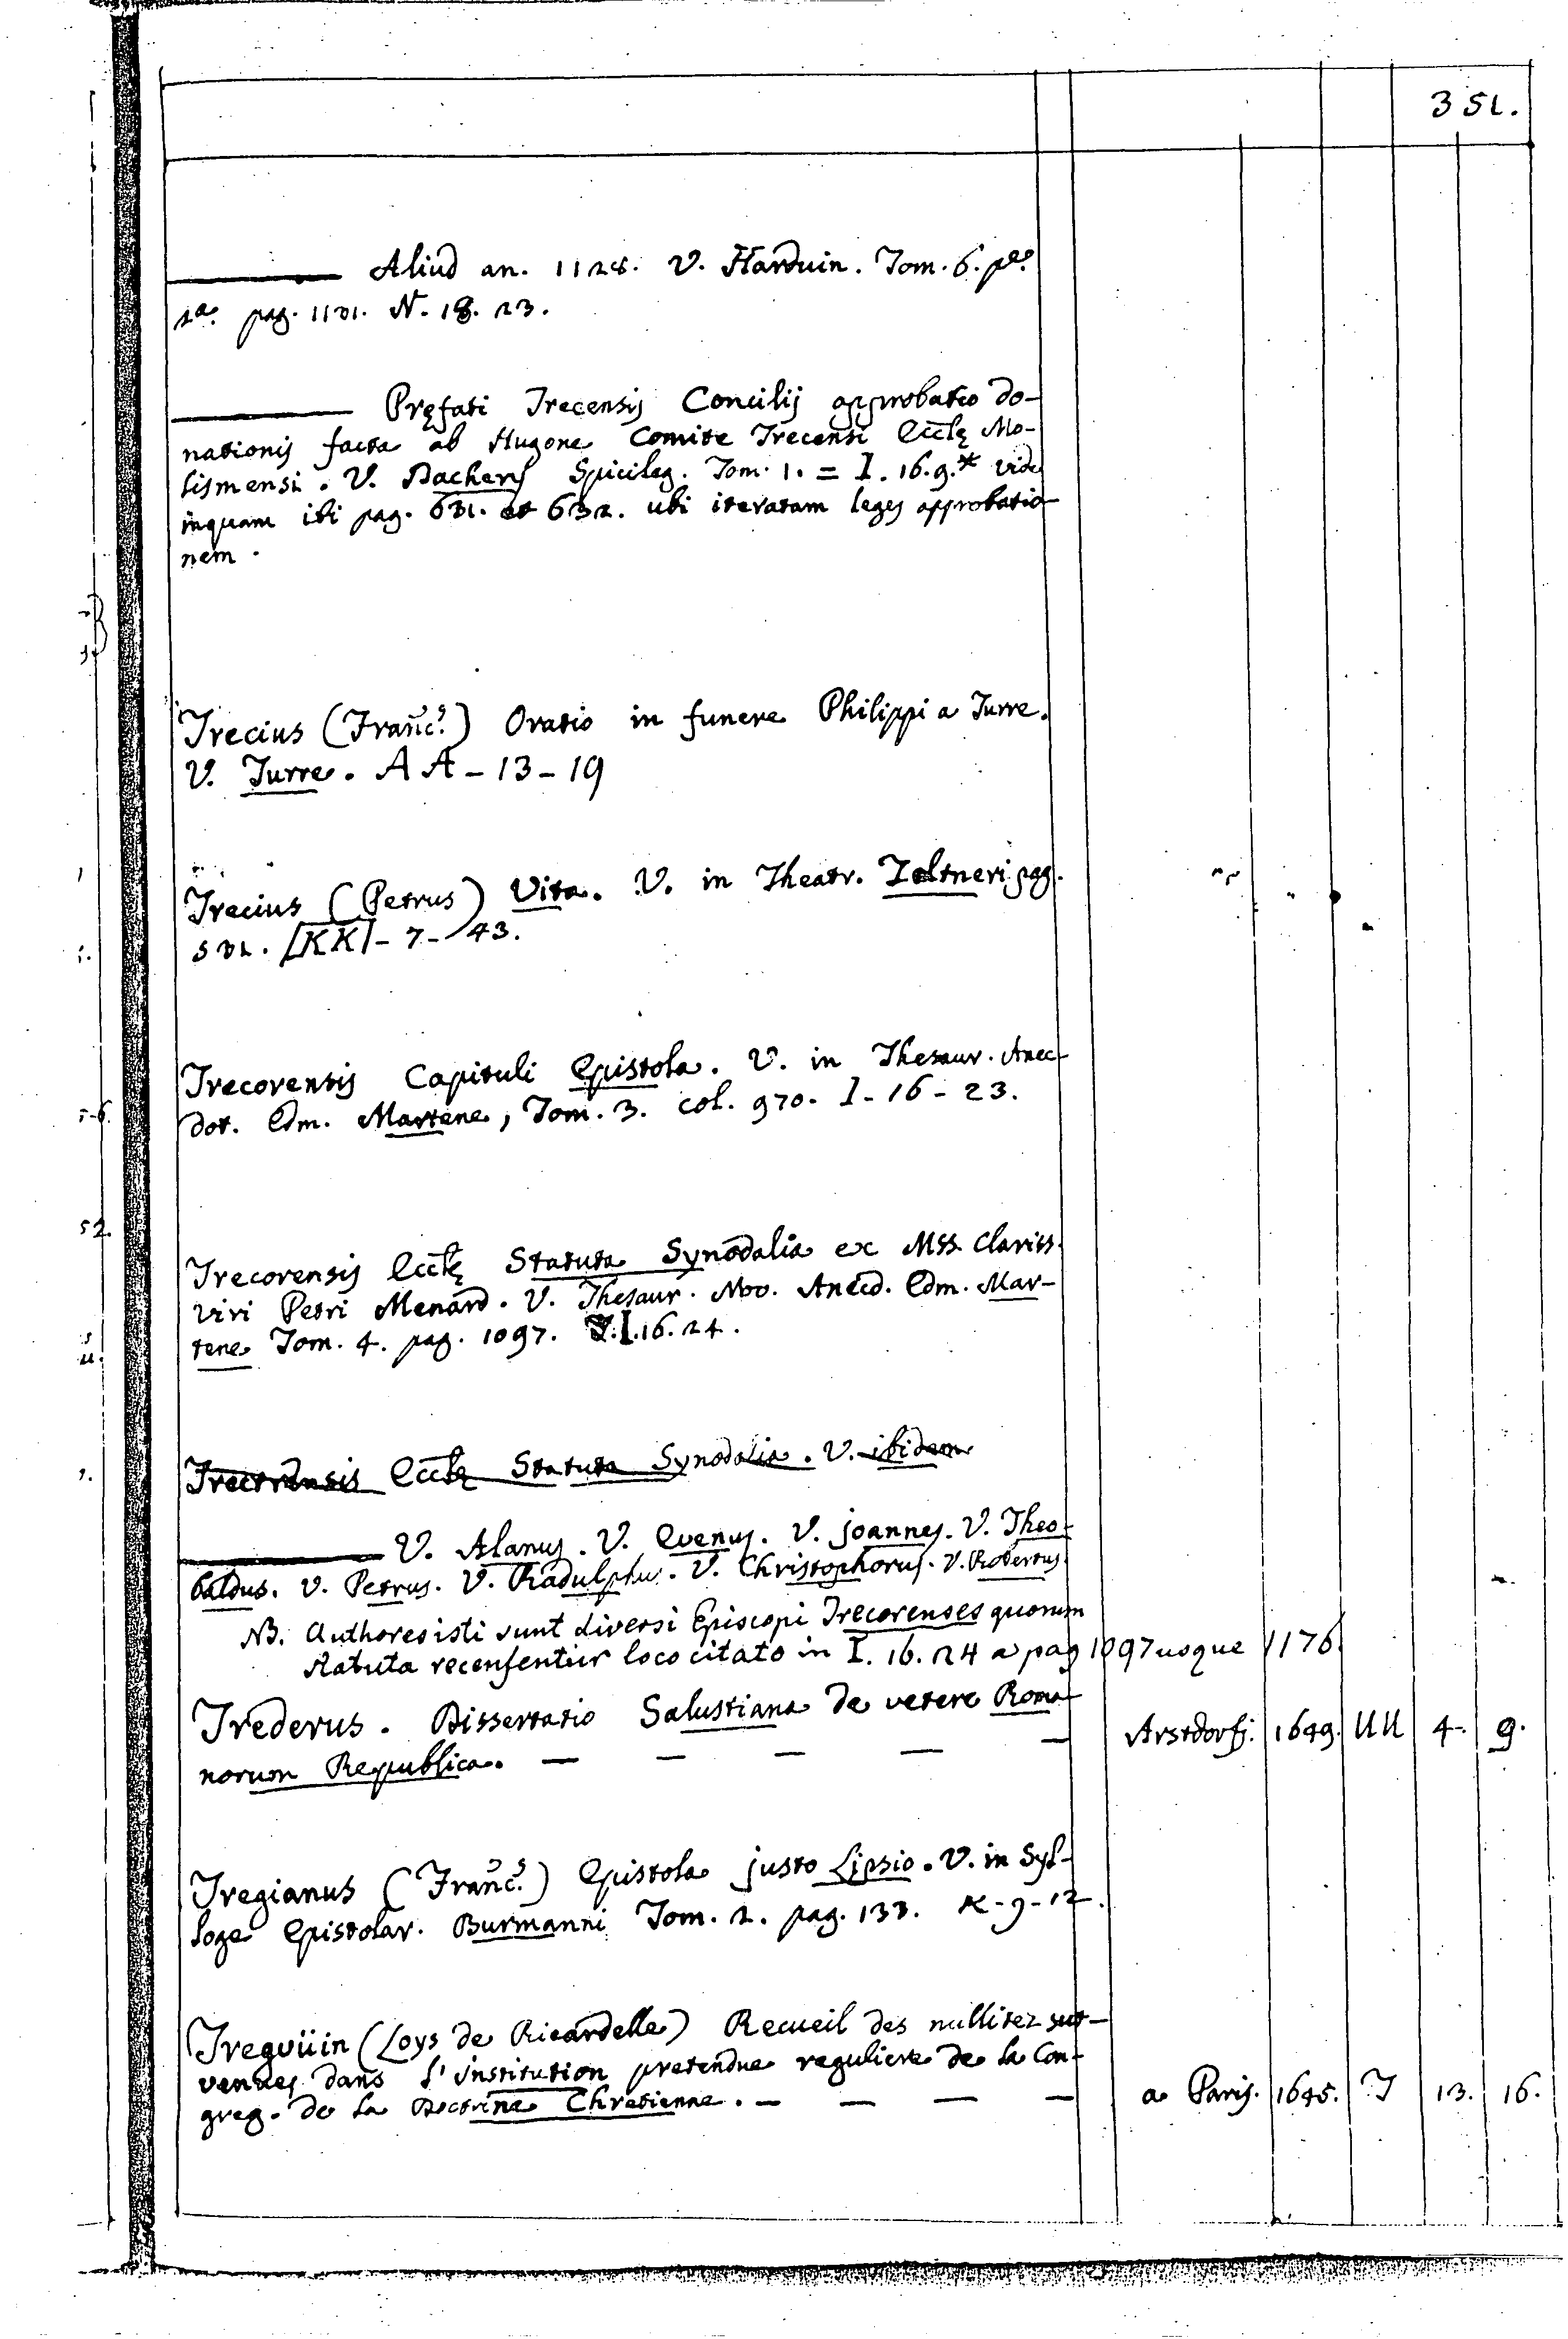 351.
——— Aliud an. 1128. V. Harduin. Tom. 6. pe.
2a. pag. 1131. N. 18. 23.
——— Pręfati Trecensis Concilij approbatio do-
nationis facta ab Hugone Comite Trecensi Eccłę Mo-
lismensi. V. Dacherÿ Spicileg. Tom. 1. = I. 16. 9.* vide
inquam ibi pag. 631. et 632. ubi iteratam leges approbatio-
nem.
Trecius (Franc.s) Oratio in funere Philippi a Turre.
V. Turre. AA - 13 - 19
Trecius (Petrus) Vita. V. in Theatr. Zeltneri pag.
532. [KK] - 7 - 43.
Trecorensis Capituli Epistola. V. in Thesaur. Anec-
dot. Edm. Martene, Tom. 3. col. 970. I - 16 - 23.
Trecorensis Eccłę Statuta Synodalia ex Mss. Clariss.
Viri Petri Menard. V. Thesaur. Nov. Anecd. Edm. Mar-
tene Tom. 4. pag. 1097. I. 16. 24.
Trecorensis Eccłę Statuta Synodalia. V. ibidem
——— V. Alanus. V. Evenus. V. Joannes. V. Theo-
baldus. V. Petrus. V. Radulphus. V. Christophorus. V. Robertus.
NB. Authores isti sunt diversi Episcopi Trecorenses quorum
statuta recensentur loco citato in I. 16. 24 a pag 1097 usque 1176
Trederus. Dissertatio Salustiana de vetere Roma-
norum Republica. — — — — — Arstdorfj. 1649. UU 4. 9.
Tregianus (Franc.s) Epistola Justo Lipsio. V. in Syl-
loge Epistolar. Burmanni Tom. 2. pag. 133. K - 9 - 12.
Tregvüin (Loys de Ricardelle) Recueil des nullitez sur-
venues dans l'institution pretendue reguliere de la Con-
greg. de la Doctrine Chretienne. — — — — a Paris. 1645. J 13. 16.